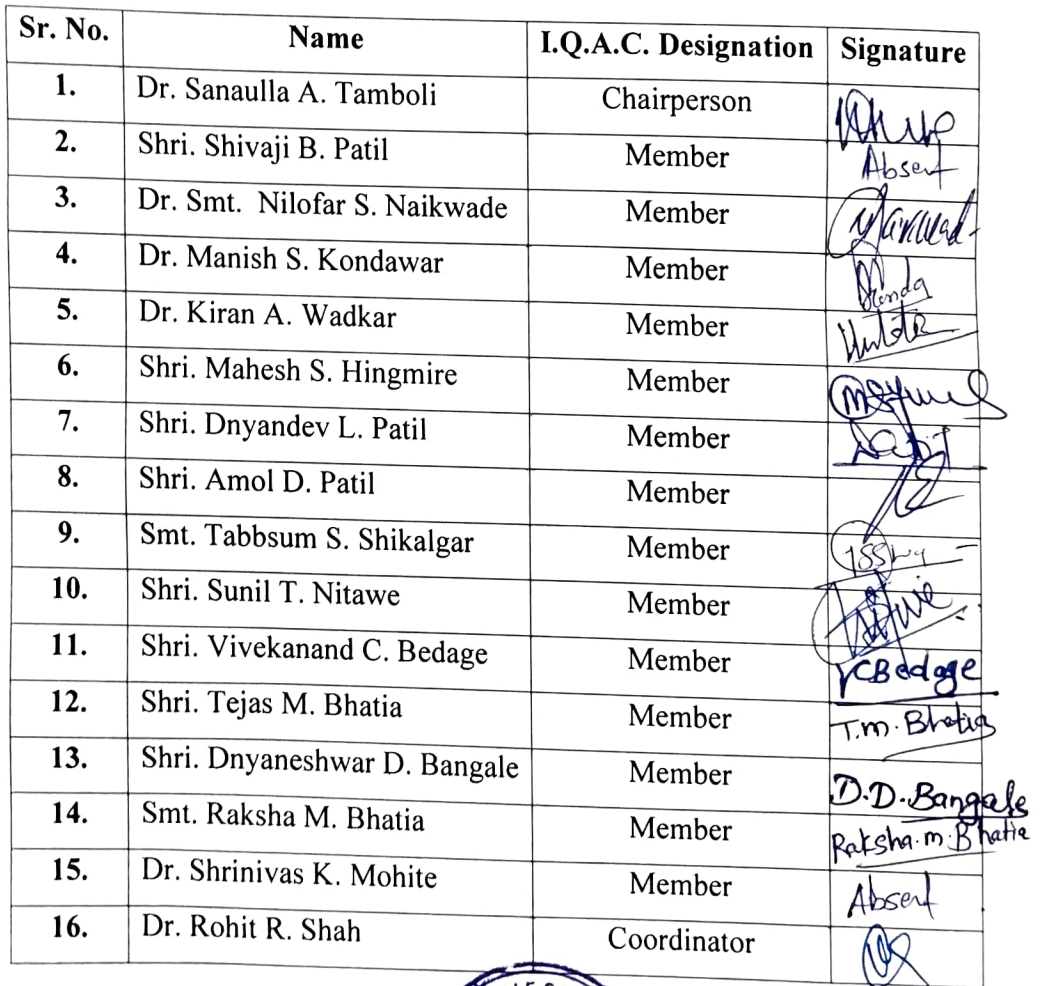 Sr. No. Name I.Q.A.C. Designation Signature
1. Dr. Sanaulla A. Tamboli Chairperson
2. Shri. Shivaji B. Patil Member Absent
3. Dr. Smt. Nilofar S. Naikwade Member
4. Dr. Manish S. Kondawar Member
5. Dr. Kiran A. Wadkar Member
6. Shri. Mahesh S. Hingmire Member
7. Shri. Dnyandev L. Patil Member
8. Shri. Amol D. Patil Member
9. Smt. Tabbsum S. Shikalgar Member
10. Shri. Sunil T. Nitawe Member
11. Shri. Vivekanand C. Bedage Member VCBedage
12. Shri. Tejas M. Bhatia Member T.m. Bhatia
13. Shri. Dnyaneshwar D. Bangale Member D.D. Bangale
14. Smt. Raksha M. Bhatia Member Raksha.m.Bhatia
15. Dr. Shrinivas K. Mohite Member Absent
16. Dr. Rohit R. Shah Coordinator